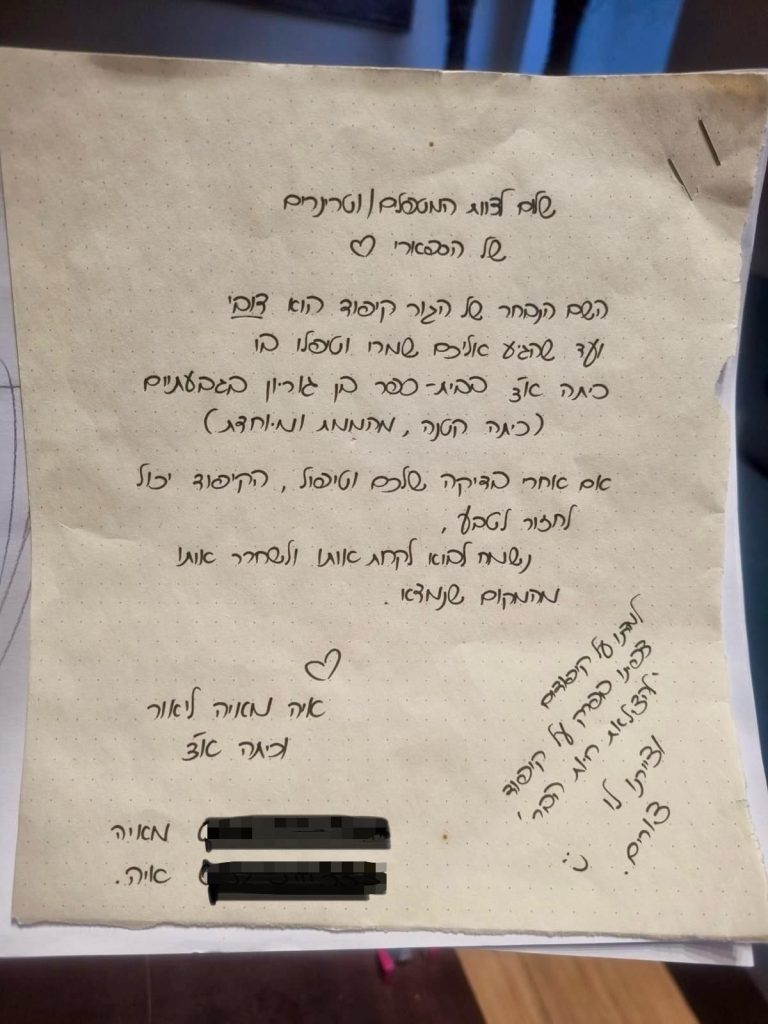 שלום לצוות המטפלים/וטרינרים
של הספארי ♡
השם הנבחר של הגור קיפוד הוא דובי
ועד שהגיע אליכם שמרו וטיפלו בו
כיתה א'צ בבית-ספר בן גוריון בגבעתיים
(כיתה קטנה, מהממת ומיוחדת)
אם אחרי בדיקה שלכם וטיפול, הקיפוד יכול
לחזור לטבע,
נשמח לבוא לקחת אותו ולשחרר אותו
מהמקום שנמצא.
♡
איה מאויה ליאור
וכיתה א'צ
מאויה
איה.
למדנו על קיפודים
צפינו בפרק על קיפוד
'להציל את חיות הבר'
וציירנו לו
ציורים.